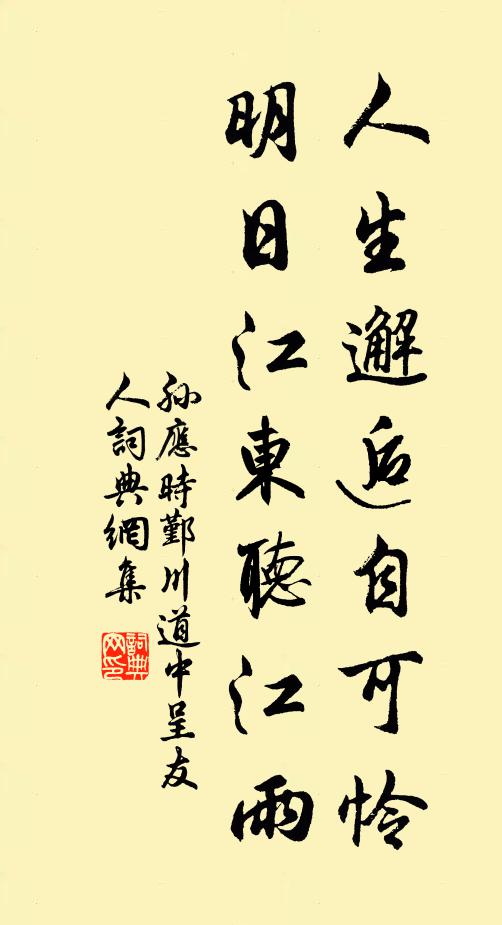 人生邂逅自可怜
明日江東聽江雨
孙應時鄞川道中呈友
人詞典網集
詞典网印